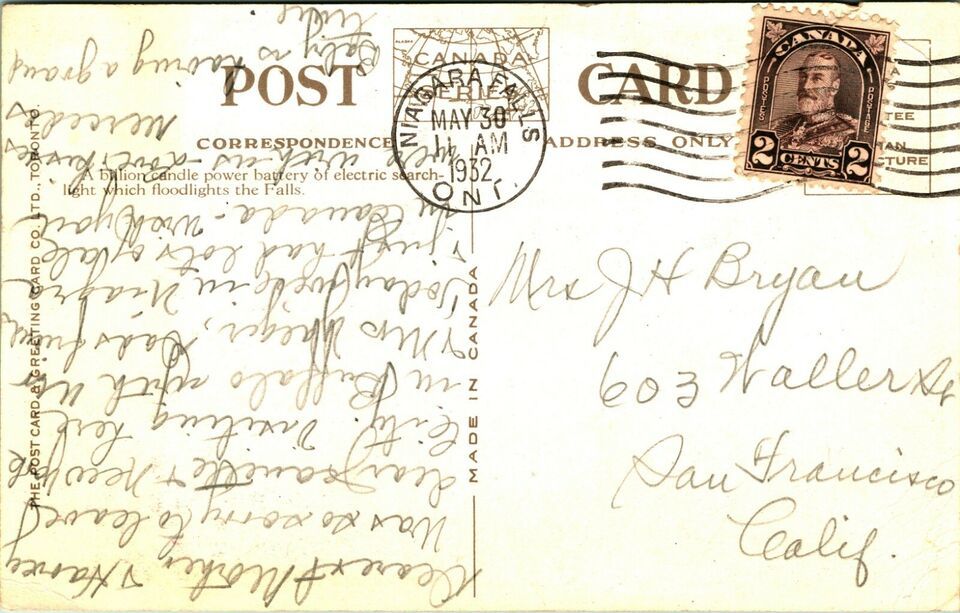 POST CARD
CANADA
NIAGARA FALLS
MAY 30
AM
1932
ONT.
CANADA
POSTES POSTAGE
2 CENTS 2
CORRESPONDENCE
ADDRESS ONLY
A billion candle power battery of electric search-
light which floodlights the Falls.
THE POST CARD & GREETING CARD CO. LTD., TORONTO.
MADE IN CANADA
Mrs J H Bryan
603 Waller St
San Francisco
Calif.
Dearest Mother & Harvey
Was so sorry to leave
dear & New York
City. Visiting here
in Buffalo with Mr
& Mrs
Today we're in
& just had lots of
in Canada - Wish you
were with us - love & kisses
Mercedes
Baby is having a grand
time